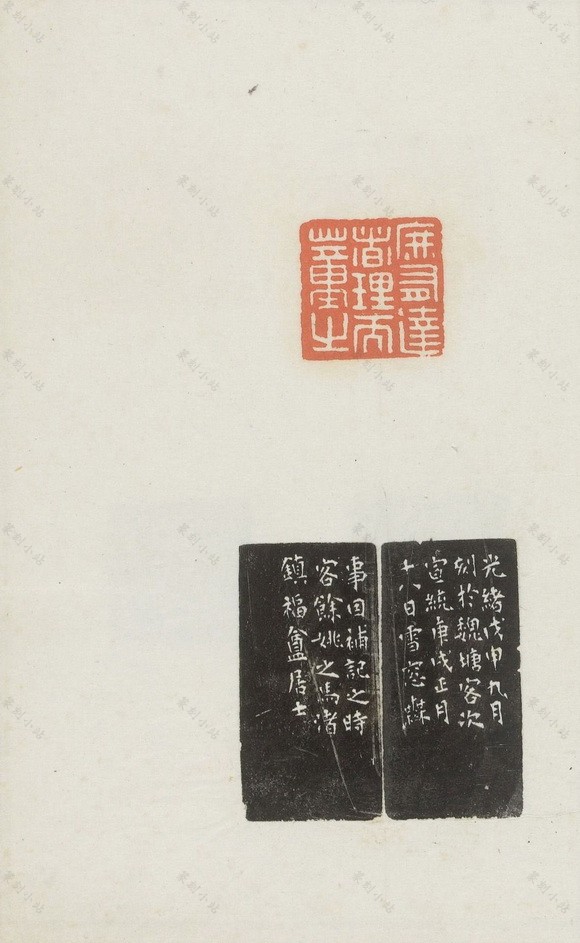 庶有達
者理而
董之
光緒戊申九月
刻於魏塘客次
宣統庚戌正月
十八日雪窓無
事因補記之時
客餘姚之馬渚
鎮福盦居士
篆刻小站